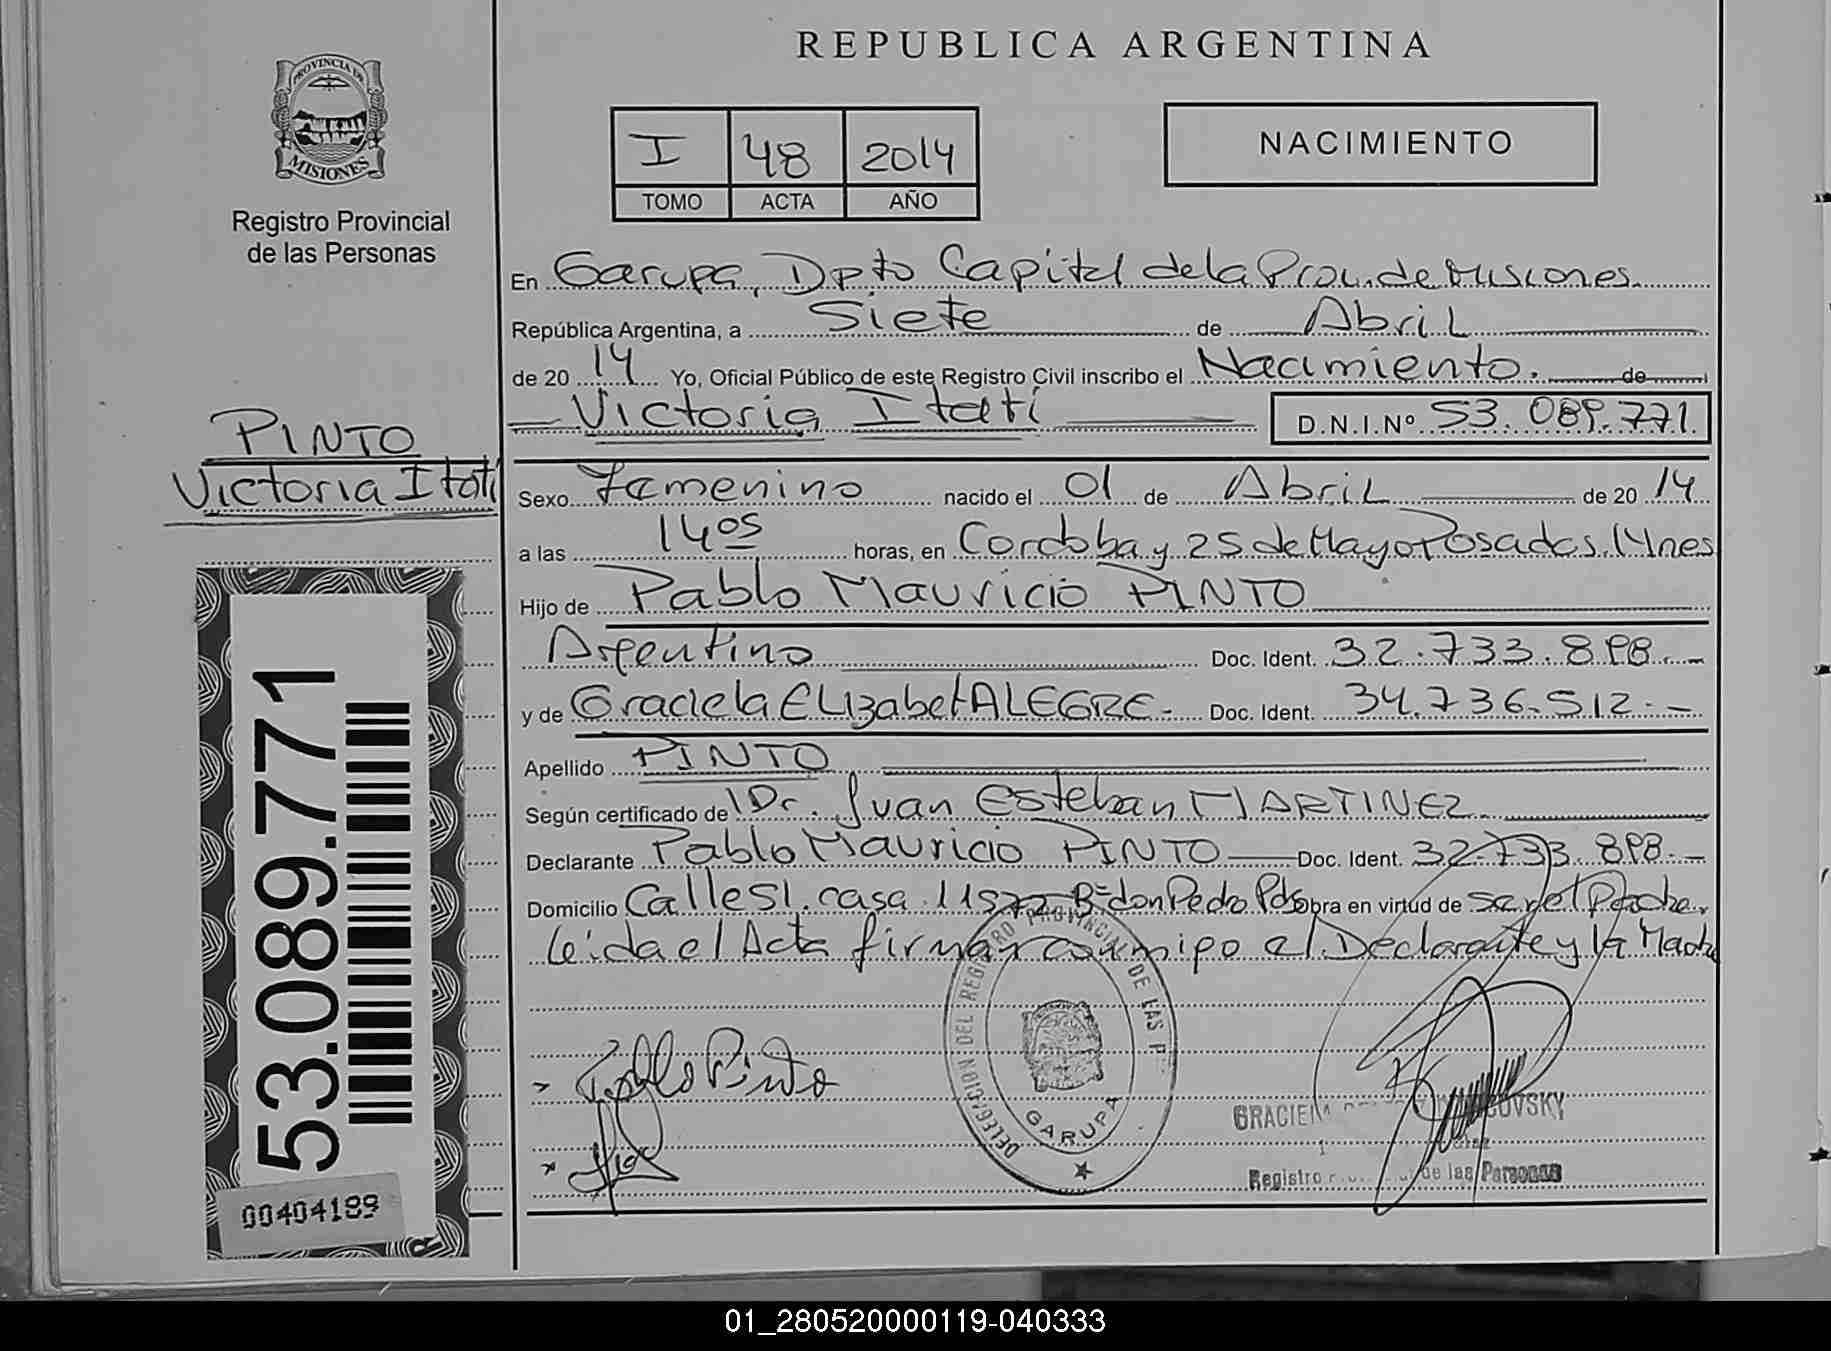 REPUBLICA ARGENTINA
PROVINCIA DE
MISIONES
Registro Provincial
de las Personas
I 48 2014
TOMO ACTA AÑO
NACIMIENTO
En Garupa, Dpto Capital de la Prov. de Misiones.
República Argentina, a Siete de Abril
de 20 14 Yo, Oficial Público de este Registro Civil inscribo el Nacimiento. de
Victoria Itatí D.N.I.Nº 53.089.771
PINTO
Victoria Itatí
Sexo Femenino nacido el 01 de Abril de 20 14
a las 14 05 horas, en Cordoba y 25 de Mayo Posadas. Mnes
Hijo de Pablo Mauricio PINTO
Argentino Doc. Ident. 32.733.898.-
y de Graciela Elizabet ALEGRE.- Doc. Ident. 34.736.512.-
Apellido PINTO
Según certificado de Dr. Juan Esteban MARTINEZ
Declarante Pablo Mauricio PINTO Doc. Ident. 32.733.898.-
Domicilio Calle 51. casa 11572 Bº don Pedro Pdas obra en virtud de ser el Padre.
leida el Acta firman conmigo el Declarante y la Madre
Pablo Pinto
DELEGACION DEL REGISTRO PROVINCIAL DE LAS P
GARUPA
GRACIELA
Registro de las Personas
53.089.771
00404189
01_280520000119-040333